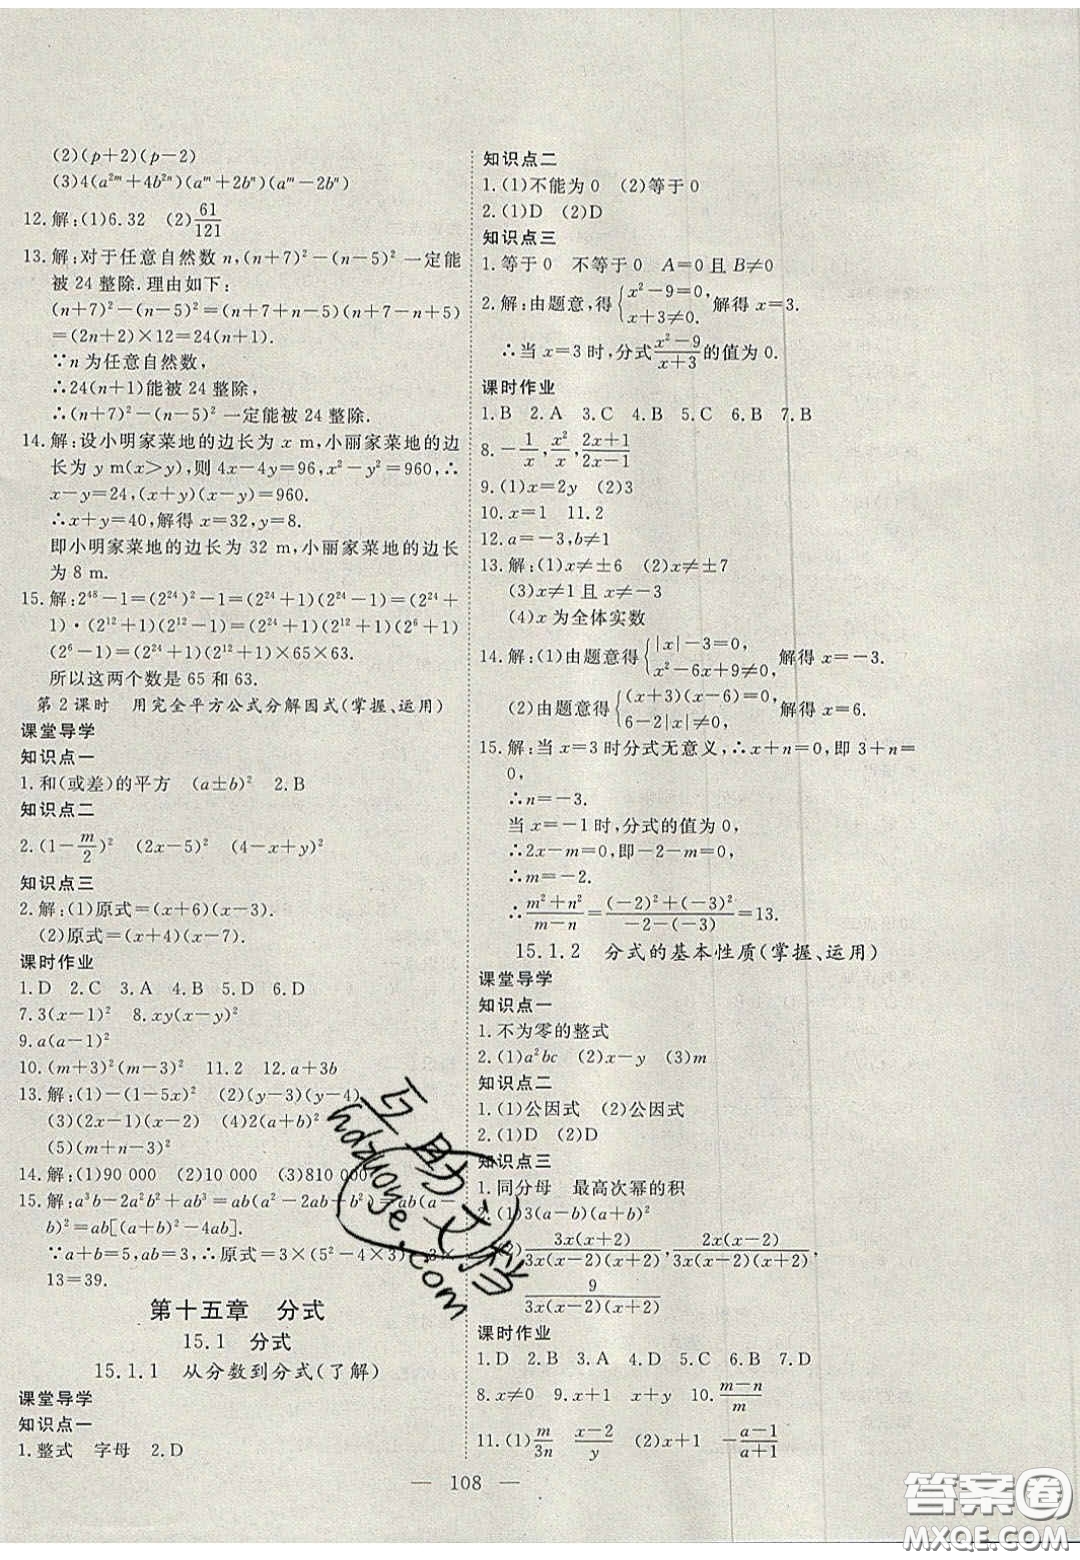 (2)(p+2)(p−2)
(3)4(a²ᵐ+4b²ⁿ)(aᵐ+2bⁿ)(aᵐ−2bⁿ)
12.解:(1)6.32 (2)61/121
13.解:对于任意自然数n,(n+7)²−(n−5)²一定能
被24整除.理由如下:
(n+7)²−(n−5)²=(n+7+n−5)(n+7−n+5)
=(2n+2)×12=24(n+1).
∵n为任意自然数,
∴24(n+1)能被24整除,
∴(n+7)²−(n−5)²一定能被24整除.
14.解:设小明家菜地的边长为x m,小丽家菜地的边
长为y m(x>y),则4x−4y=96,x²−y²=960,∴
x−y=24,(x+y)(x−y)=960.
∴x+y=40,解得x=32,y=8.
即小明家菜地的边长为32 m,小丽家菜地的边长
为8 m.
15.解:2⁴⁸−1=(2²⁴)²−1=(2²⁴+1)(2²⁴−1)=(2²⁴+
1)·(2¹²+1)(2¹²−1)=(2²⁴+1)(2¹²+1)(2⁶+1)
(2⁶−1)=(2²⁴+1)(2¹²+1)×65×63.
所以这两个数是65和63.
第2课时 用完全平方公式分解因式(掌握、运用)
课堂导学
知识点一
1.和(或差)的平方 (a±b)² 2.B
知识点二
2.(1−m/2)² (2x−5)² (4−x+y)²
知识点三
2.解:(1)原式=(x+6)(x−3).
(2)原式=(x+2)(x−7).
课时作业
1.D 2.C 3.A 4.B 5.D 6.D
7.3(x−1)² 8.xy(x−y)²
9.a(a−1)²
10.(m+3)²(m−3)² 11.2 12.a+3b
13.解:(1)−(1−5x)² (2)(y−3)(y−4)
(3)(2x−y)² (4)(x+1)²
(5)(m+n−3)²
14.解:(1)90 000 (2)10 000 (3)810 000
15.解:a³b−2a²b²+ab³=ab(a²−2ab+b²)=ab(a−
b)²=ab[(a+b)²−4ab].
∵a+b=5,ab=3,∴原式=3×(5²−4×3)=3×
13=39.
第十五章 分式
15.1 分式
15.1.1 从分数到分式(了解)
课堂导学
知识点一
1.整式 字母 2.D
知识点二
1.(1)不能为0 (2)等于0
2.(1)D (2)D
知识点三
1.等于0 不等于0 A=0且B≠0
2.解:由题意,得{x²−9=0, x+3≠0. 解得x=3.
∴当x=3时,分式(x²−9)/(x+3)的值为0.
课时作业
1.B 2.A 3.C 4.B 5.C 6.B 7.B
8.−1/x, x²/x, (2x+1)/(2x−1)
9.(1)x=2y (2)3
10.x=1 11.2
12.a=−3,b≠1
13.解:(1)x≠±6 (2)x≠±7
(3)x≠1且x≠−3
(4)x为全体实数
14.解:(1)由题意得{|x|−3=0, x²−6x+9≠0, 解得x=−3.
(2)由题意得{(x+3)(x−6)=0, 6−2|x|≠0, 解得x=6.
15.解:当x=3时分式无意义,∴x+n=0,即3+n=
0,
∴n=−3.
当x=−1时,分式的值为0,
∴2x−m=0,即−2−m=0,
∴m=−2.
∴(m²+n²)/(m−n)=((−2)²+(−3)²)/(−2−(−3))=13.
15.1.2 分式的基本性质(掌握、运用)
课堂导学
知识点一
1.不为零的整式
2.(1)a²bc (2)x−y (3)m
知识点二
1.(1)公因式 (2)公因式
2.(1)D (2)B
知识点三
1.同分母 最高次幂的积
2.(1)3(a−b)(a+b)²
(2)3x(x+2)/(3x(x−2)(x+2)), 2x(x−2)/(3x(x−2)(x+2)),
9/(3x(x−2)(x+2))
课时作业
1.D 2.B 3.A 4.D 5.D 6.B 7.D
8.x≠0 9.x+1 x+y 10.(m−n)/m
11.(1)m/3n (x−2)/y (2)x+1 −(a−1)/(a+1)
— 108 —
互助文档
hdzuoye.com
答案圈
MXQE.COM